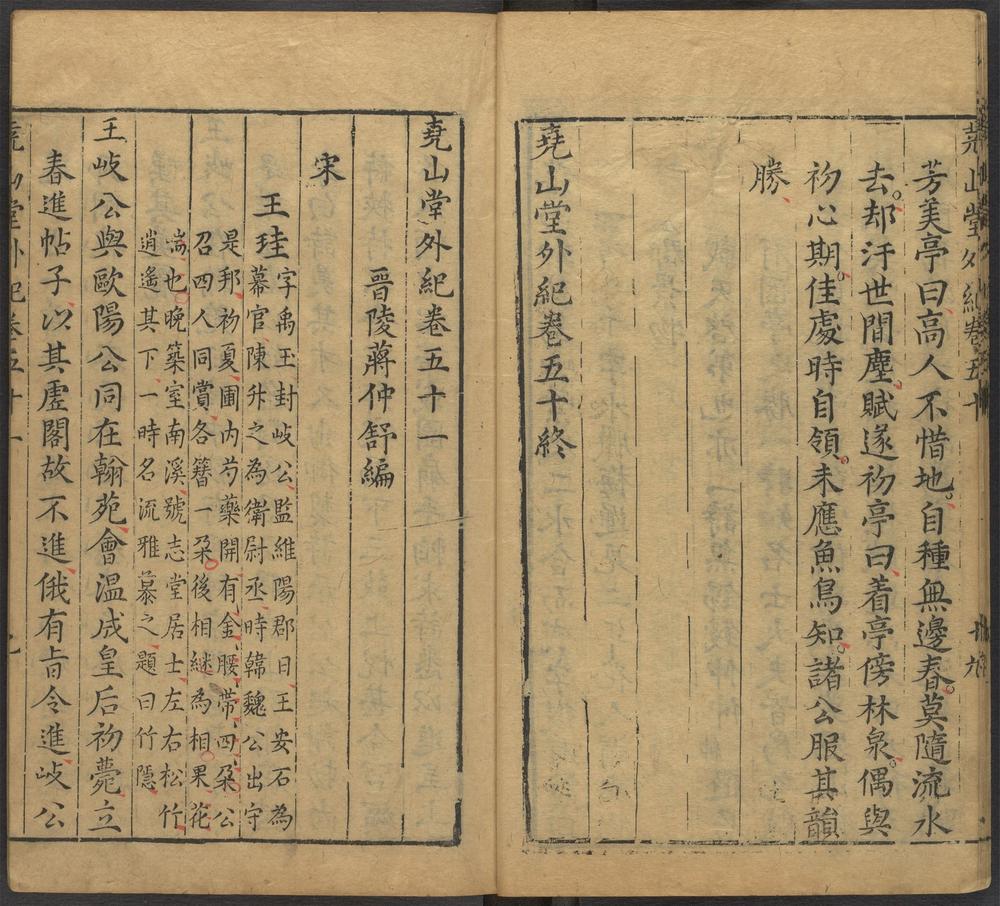 堯山堂外紀卷五十
十九
芳美亭曰高人不惜地自種無邊春莫隨流水
去却汙世間塵賦遂初亭曰着亭傍林泉偶與
初心期佳處時自領未應魚鳥知諸公服其韻
勝
堯山堂外紀卷五十終
堯山堂外紀卷五十一
晋陵蔣仲舒編
宋
王珪
字禹玉封岐公監維陽郡日王安石為
幕官陳升之為衛尉丞時韓魏公出守
是邦初夏圃内芍藥開有金腰帶四朶公
召四人同賞各簪一朶後相継為相果花
瑞也晚築室南溪號志堂居士左右松竹
逍遙其下一時名流雅慕之題曰竹隱
王岐公與歐陽公同在翰苑會温成皇后初薨立
春進帖子以其虚閣故不進俄有旨令進岐公
堯山堂外紀卷五十一